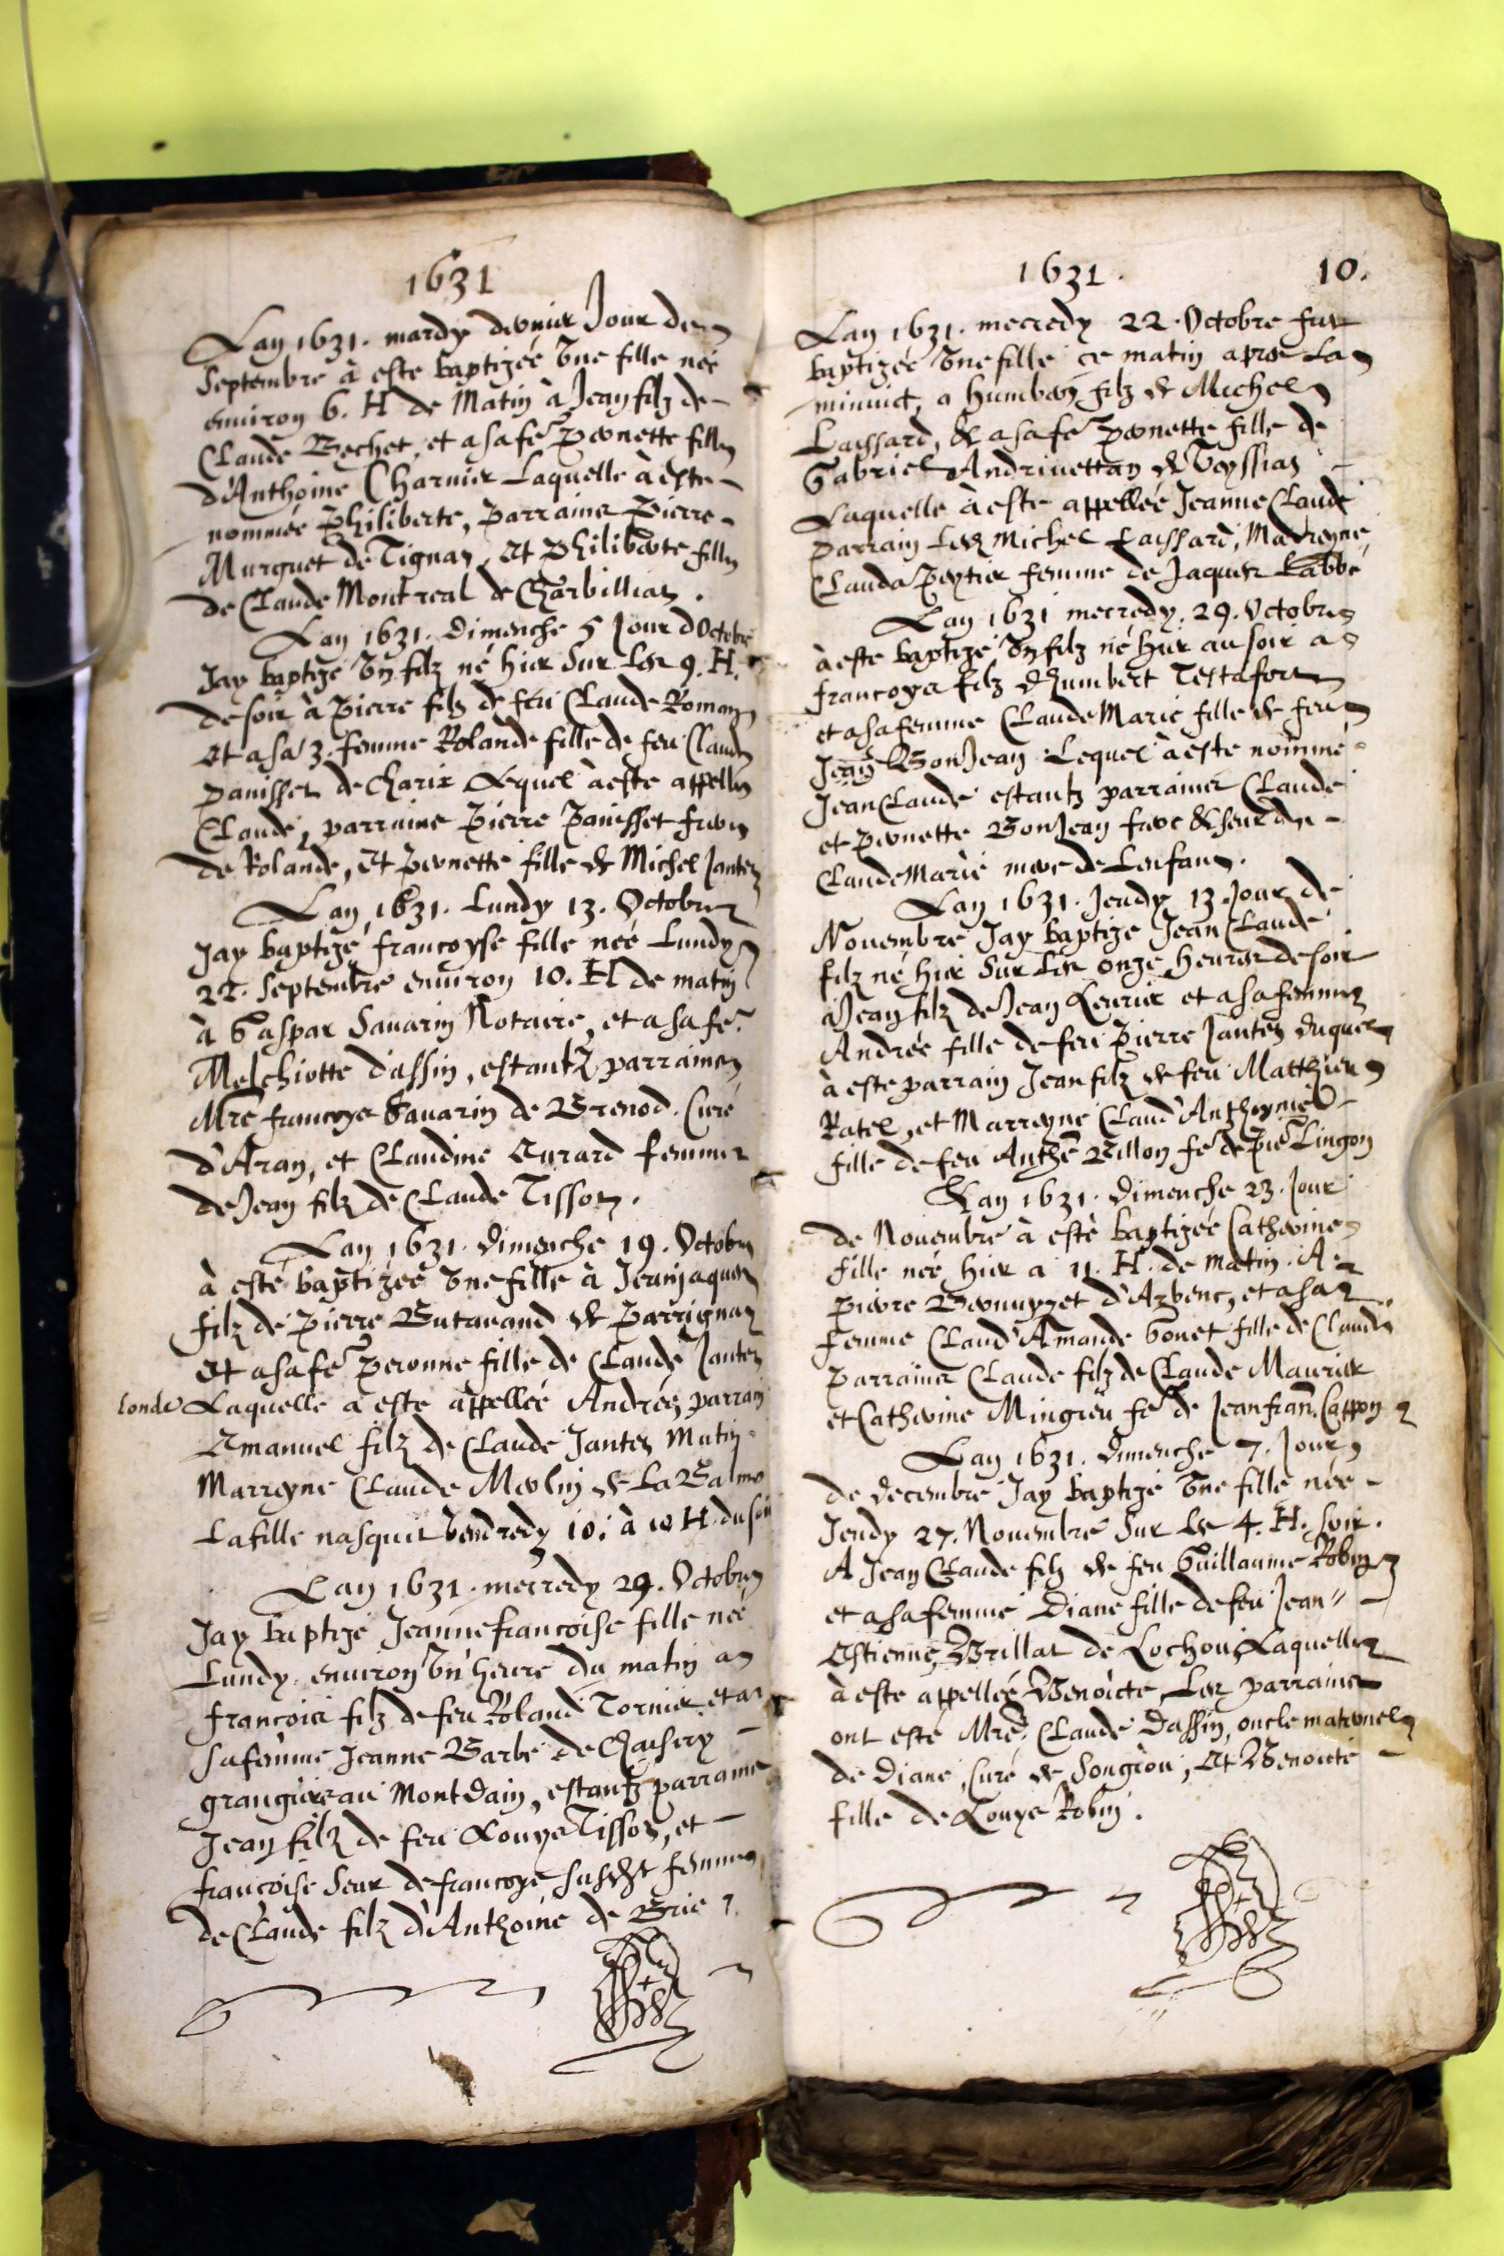 1631
Lan 1631. mardy dernier Jour de
Septembre à este baptizée Une fille née
environ 6. H de Matin à Jean filz de
Claude Bechet, et a sa fe Pernette fille
d'Anthoine Charnier Laquelle à este
nommée Philiberte, Parraine Pierre
Murguet de Tignaz, Et Philiberte fille
de Claude Montreal de Charbilliaz.
Lan 1631. Dimenche 5 Jour d'Octobre
Jay baptizé Un filz né hier Sur Les 9. H.
de soir à Pierre filz de feu Claude Roman
et a sa 3. femme Rolande fille de feu Claude
Panisset de Charix Lequel à este appellé
Claude, parraine Pierre Panisset frere
de Rolande, Et Pernette fille de Michel Jantez
Lan 1631. Lundy 13. Octobre
Jay baptizé francoyse fille née Lundy
22. Septembre environ 10. H de matin
à Gaspar Savarin Notaire, et a sa fe
Melchiotte d'assin, estantz parraines
Mre francoys Savarin de Brenod. Curé
d'Aran, et Claudine Curard femme
de Jean filz de Claude Tissot.
Lan 1631. Dimenche 19. Octobre
à esté baptizée Une fille à Jeanjaques
filz de Pierre Butavand de Parrignaz
Et a sa fe Peronne fille de Claude Jantez
Londe Laquelle a este appellée Andrée, parrain
Emanuel filz de Claude Jantez Mutin
Marreyne Claude Merlin de La Balme
La fille nasquit vendredy 10. à 10 H. du soir
Lan 1631. mecredy 29. Octobre
Jay baptizé Jeannefrancoise fille née
Lundy. environ Un' heure du matin a
Francois filz de feu Roland Tornier et a
sa femme Jeanne Barbe de Chasery
grangiere au Mont Dain, estantz parraine
Jean filz de feu Louys Tissot, et
francoise Seur de francoys susdt femme
de Claude filz d'Anthoine de Brie
1631. 10.
Lan 1631. mecredy 22. Octobre fut
baptizée Une fille ce matin apres La
minuict, a Humbert filz de Michel
Laissard, & a sa fe Pernette fille de
Gabriel Andrinettan de Veyssiaz
Laquelle à este appellée Jeanne Claude
Parrain Led Michel Laissard, Madreyne
Clauda Peytier femme de Jaques Labbé
Lan 1631 mecredy. 29. Octobre
à este baptizé Un filz né hier au soir a
francoys filz d'humbert Testafort
et a sa femme Claude Marie fille de feu
Jean Bon Jean Lequel à este nommé
Jean Claude estantz parraines Claude
et Pernette Bon Jean frere & seur de
Claude Marie mere de Lenfant.
Lan 1631. Jeudy 13. Jour de
Novembre Jay baptizé Jean Claude
filz né hier Sur Les onze heures de soir
à Jean filz de Jean Levrier et a sa femme
Andrée fille de feu Pierre Jantez duquel
à este parrain Jean filz de feu Matthieu
Ratel, et Marreyne Claud'Anthoyne
fille de feu Anthe Billon fe de Pie Lingon
Lan 1631. Dimenche 23. Jour
de Novembre à esté baptizée Catherine
fille née hier a 11. H. de matin. A
Pierre d'Azbenc, et a sa
femme Claud'Amande Gonet fille de Claude
Parraines Claude filz de Claude Maurier
et Catherine Mingieu fe de Jean fran. Cappon
Lan 1631. Dimenche 7. Jour
de decembre Jay baptizé Une fille née
Jeudy 27. Novembre Sur Les 4. H. soir.
A Jean Claude filz de feu Guillaume Robin
et a sa femme Diane fille de feu Jean
Estienne Brillat de Lochou, Laquelle
à este appellée Benoicte, Les parraines
ont esté Mre Claude Dassin, oncle maternel
de Diane, Curé de Songiou, Et Benoite
fille de Louys Robin.